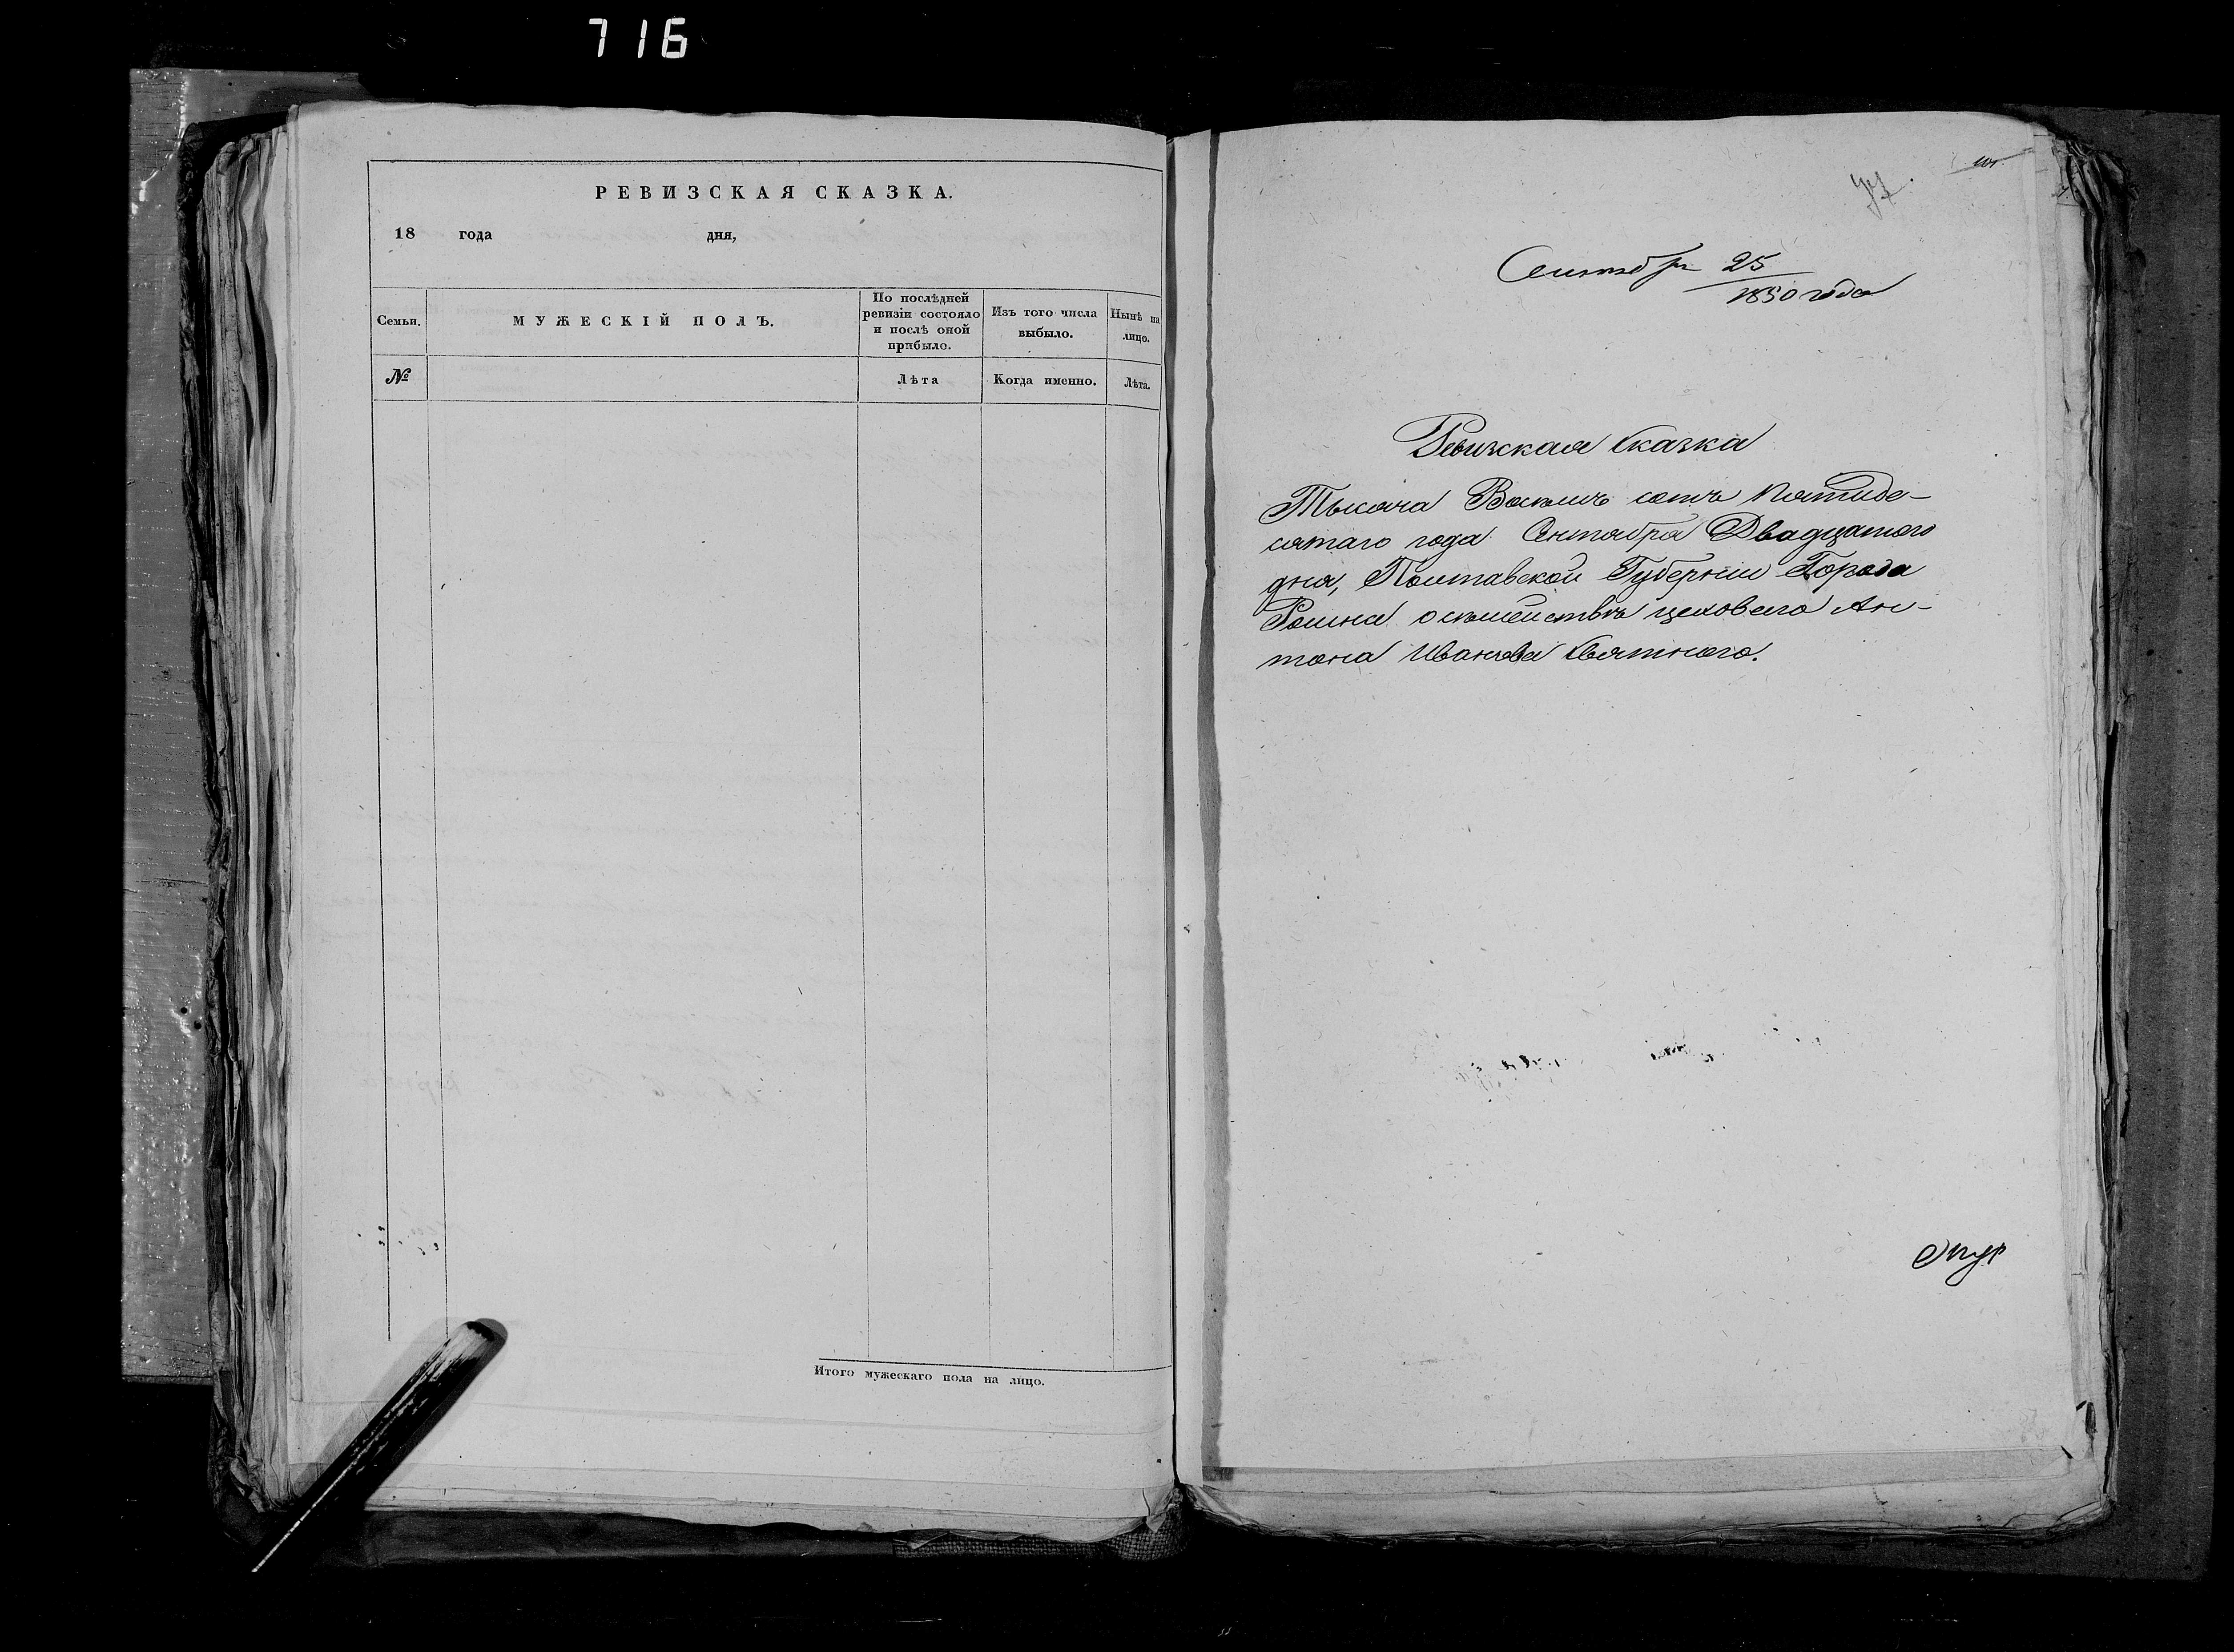 716
РЕВИЗСКАЯ СКАЗКА.
18 года дня,
Семьи.
МУЖЕСКІЙ ПОЛЪ.
По послѣдней
ревизіи состояло
и послѣ оной
прибыло.
Изъ того числа
выбыло.
Нынѣ на
лицо.
№
Лѣта
Когда именно.
Лѣта.
Итого мужескаго пола на лицо.
25
1850 года
Ревизская Сказка
Тысяча Восемь сотъ пятиде-
сятаго года Сентября Двадцатого
дня, Полтавской Губернии Города
Ромна о семействѣ цеховаго Ан-
тона Иванова Святного.